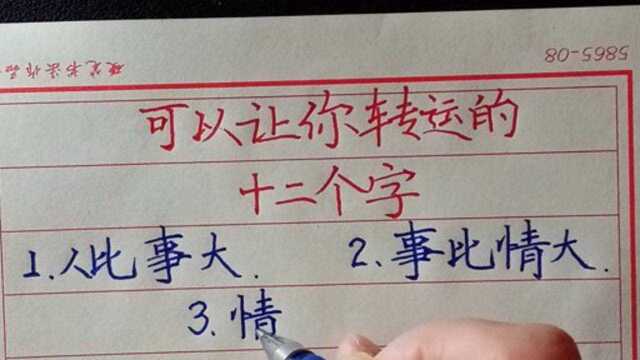 5865-08
硬笔书法作品
可以让你转运的
十二个字
1.人比事大. 2.事比情大.
3.情